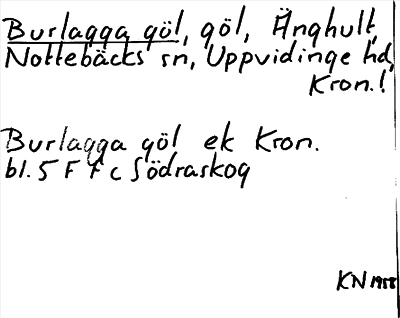 Burlagga göl, göl, Änghult,
Nottebäcks sn, Uppvidinge hd,
Kron.!
Burlagga göl ek Kron.
bl. 5 F f c Södraskog
KN 1958